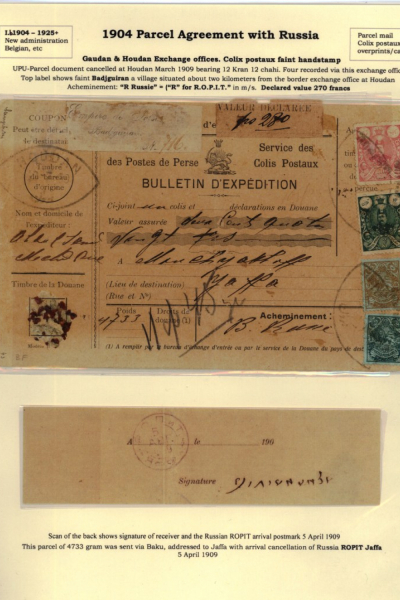 1904 – 1925+
New administration
Belgian, etc
1904 Parcel Agreement with Russia
Parcel mail
Colix postaux
overprints/ca
Gaudan & Houdan Exchange offices. Colix postaux faint handstamp
UPU-Parcel document cancelled at Houdan March 1909 bearing 12 Kran 12 chahi. Four recorded via this exchange office
Top label shows faint Badjguiran a village situated about two kilometers from the border exchange office at Houdan
Acheminement: "R Russie" = ("R" for R.O.P.I.T.) in m/s. Declared value 270 francs
COUPON
Peut être détaché
VALEUR DÉCLARÉE
frs 280
des Postes de Perse
Service des
Colis Postaux
BULLETIN D'EXPÉDITION
Timbre
du bureau
d'origine
Ci-joint un colis et déclarations en Douane
Valeur assurée deux Cent quatre
Vingt frs
Nom et domicile de
l'expéditeur
A
(Lieu de destination) Jaffa
(Rue et Nº)
Timbre de la Douane
Poids 4733
Droits de
douane (1)
Acheminement:
(1) A remplir par le bureau d'échange d'entrée ou par le service de la Douane du pays de dest
A le 190
Signature
Scan of the back shows signature of receiver and the Russian ROPIT arrival postmark 5 April 1909
This parcel of 4733 gram was sent via Baku, addressed to Jaffa with arrival cancellation of Russia ROPIT Jaffa
5 April 1909